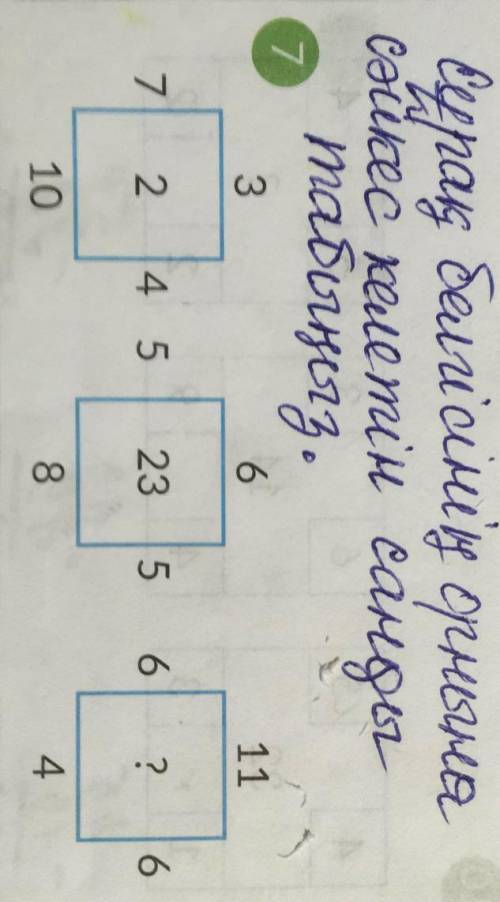 Сұрақ белгісінің орнына
сәйкес келетін санды
табыңыз.
7
3 6 11
7 2 4 5 23 5 6 ? 6
10 8 4